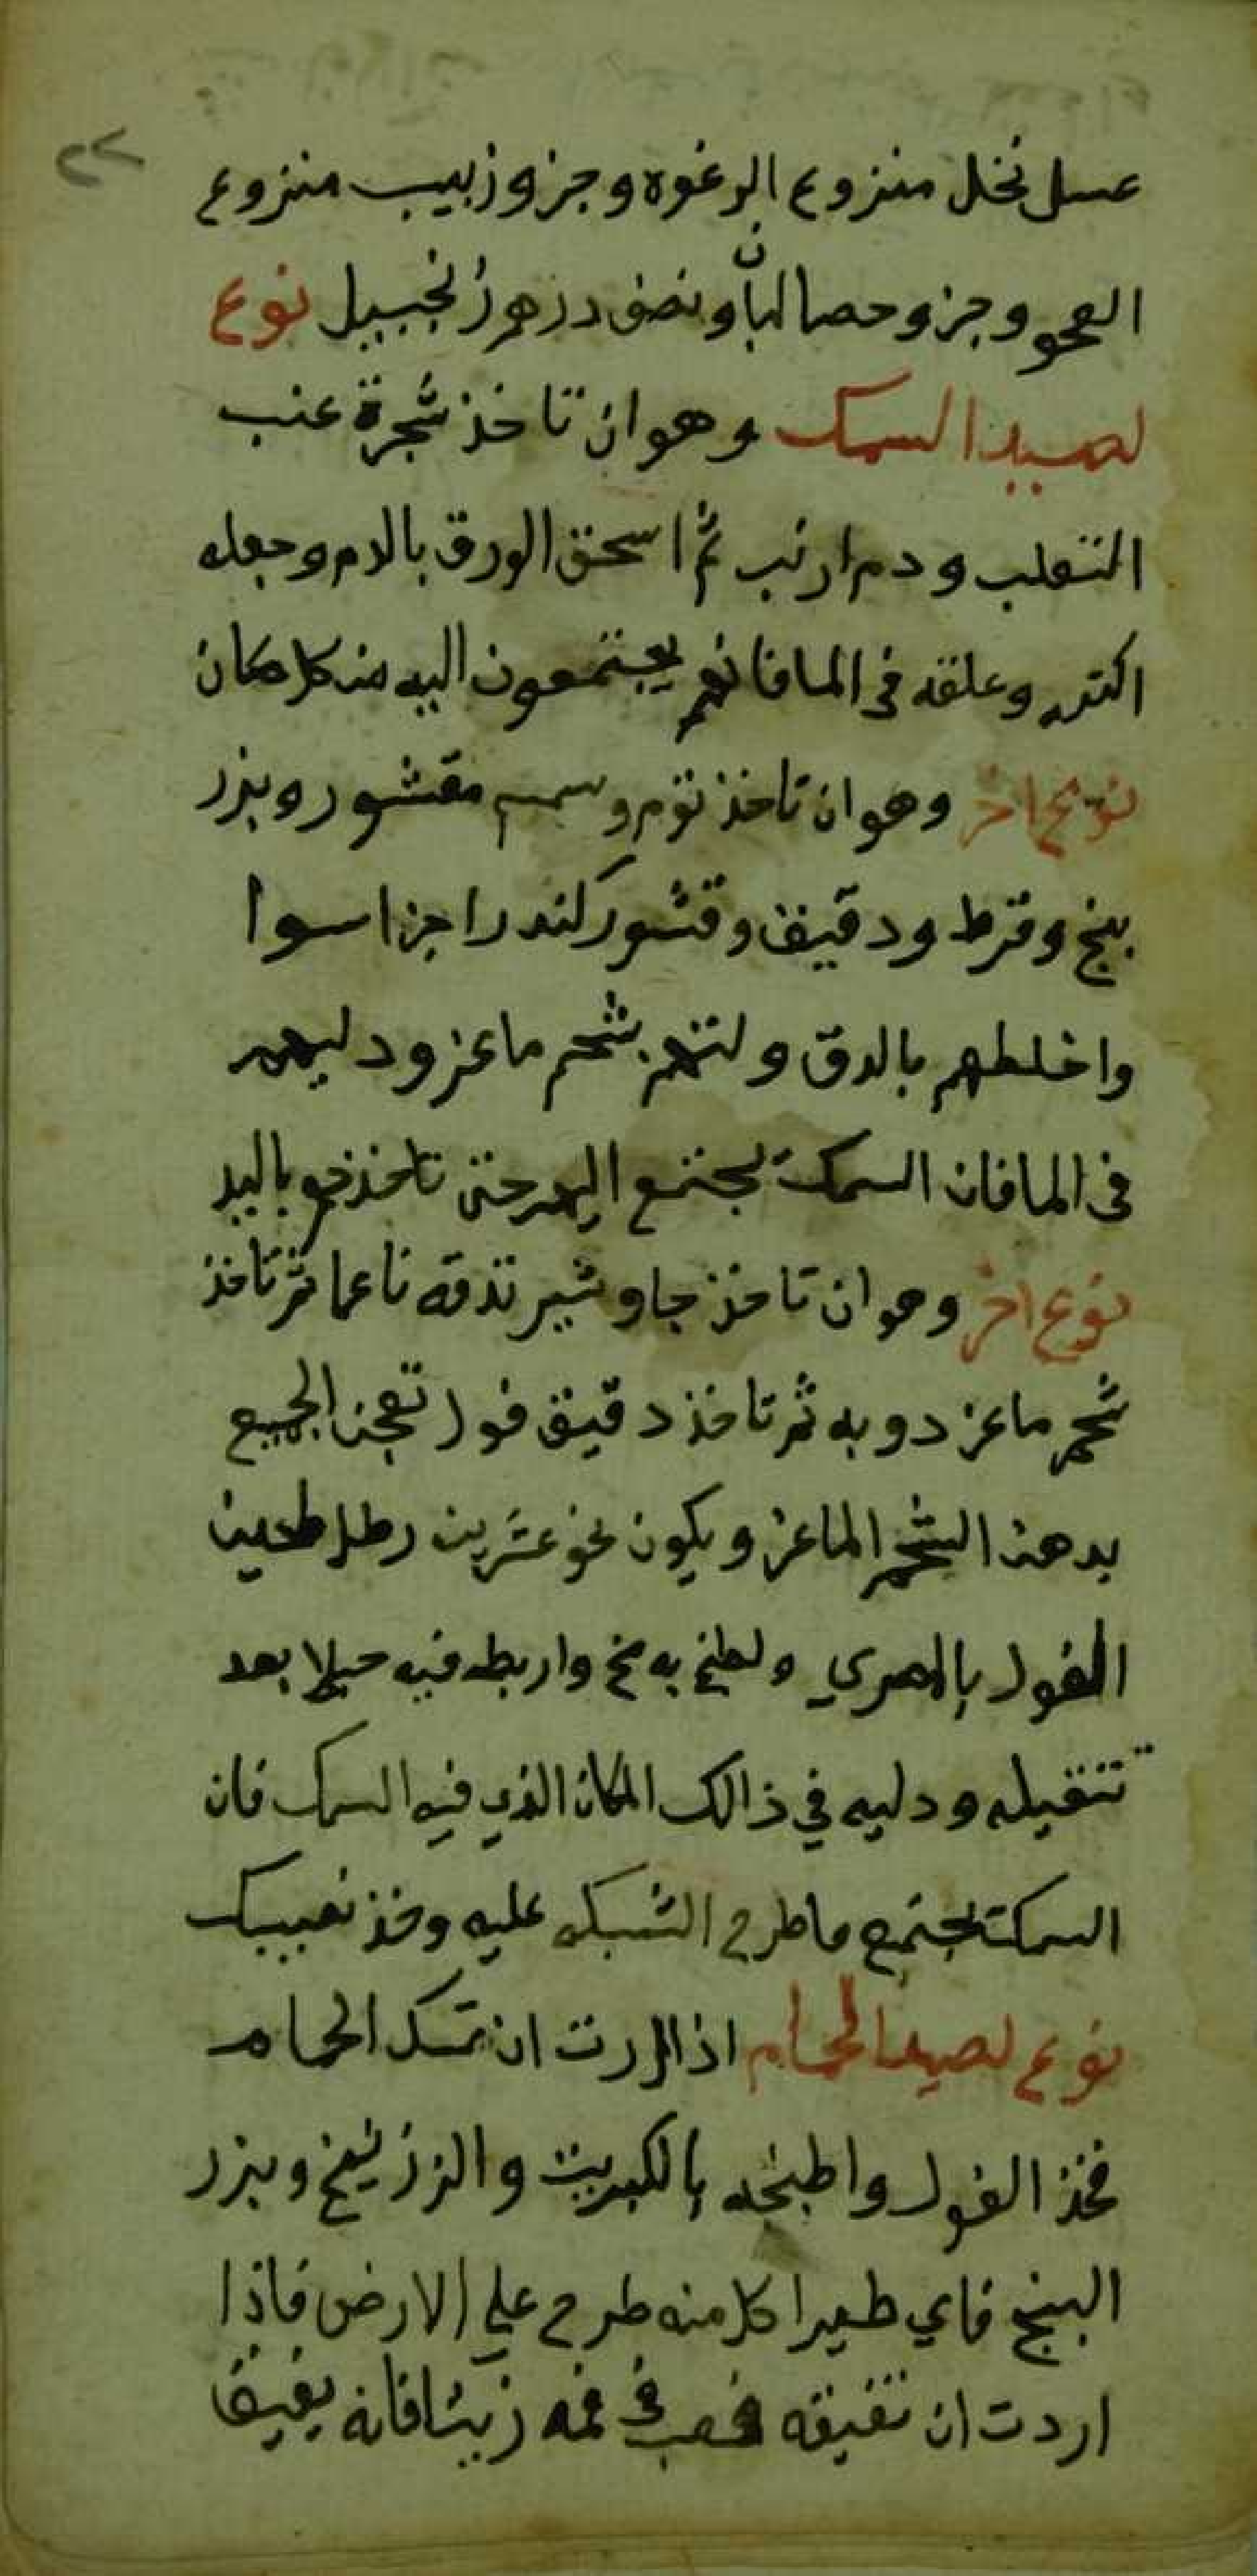 ٢٢
عسل نحل منزوع الرغوه وجزو زبيب منزوع
العجو وجزو حصا لبان ونصف درهم زنجبيل نوع
لصيد السمك وهو ان تاخذ شجرة عنب
التعلب ودم ارنب ثم اسحق الورق بالدم وجعله
اكتر وعلقه في الما فانهم يجتمعون اليه من كل مكان
نوع اخر وهو ان تاخذ توم وسمسم مقشور وبزر
بنج وقرط ودقيق وقشور كندر اجزا سوا
واخلطهم بالدق ولتهم بشحم ماعز ودليهم
في الما فان السمك تجتمع اليهم حتى تاخذهم باليد
نوع اخر وهو ان تاخذ جاوشير تدقه ناعما ثم تاخذ
شحم ماعز دوبه ثم تاخذ دقيق فول تعجن الجميع
بدهن الشحم الماعز ويكون نحو عشرين رطل طحين
الفول بالمصري ولطخ به واربطه فيه حبلا بعد
تتقيله ودليه في ذالك المكان الذي فيه السمك فان
السمك تجتمع فاطرح الشبكه عليه وخذ نصيبك
نوع لصيد الحمام اذا اردت ان تمسك الحمام
فخذ الفول واطبخه بالكبريت والزرنيخ وبزر
البنج فاي طيرا كل منه طرح علي الارض فاذا
اردت ان تفيقه فصب في فمه زيتا فانه يفيق